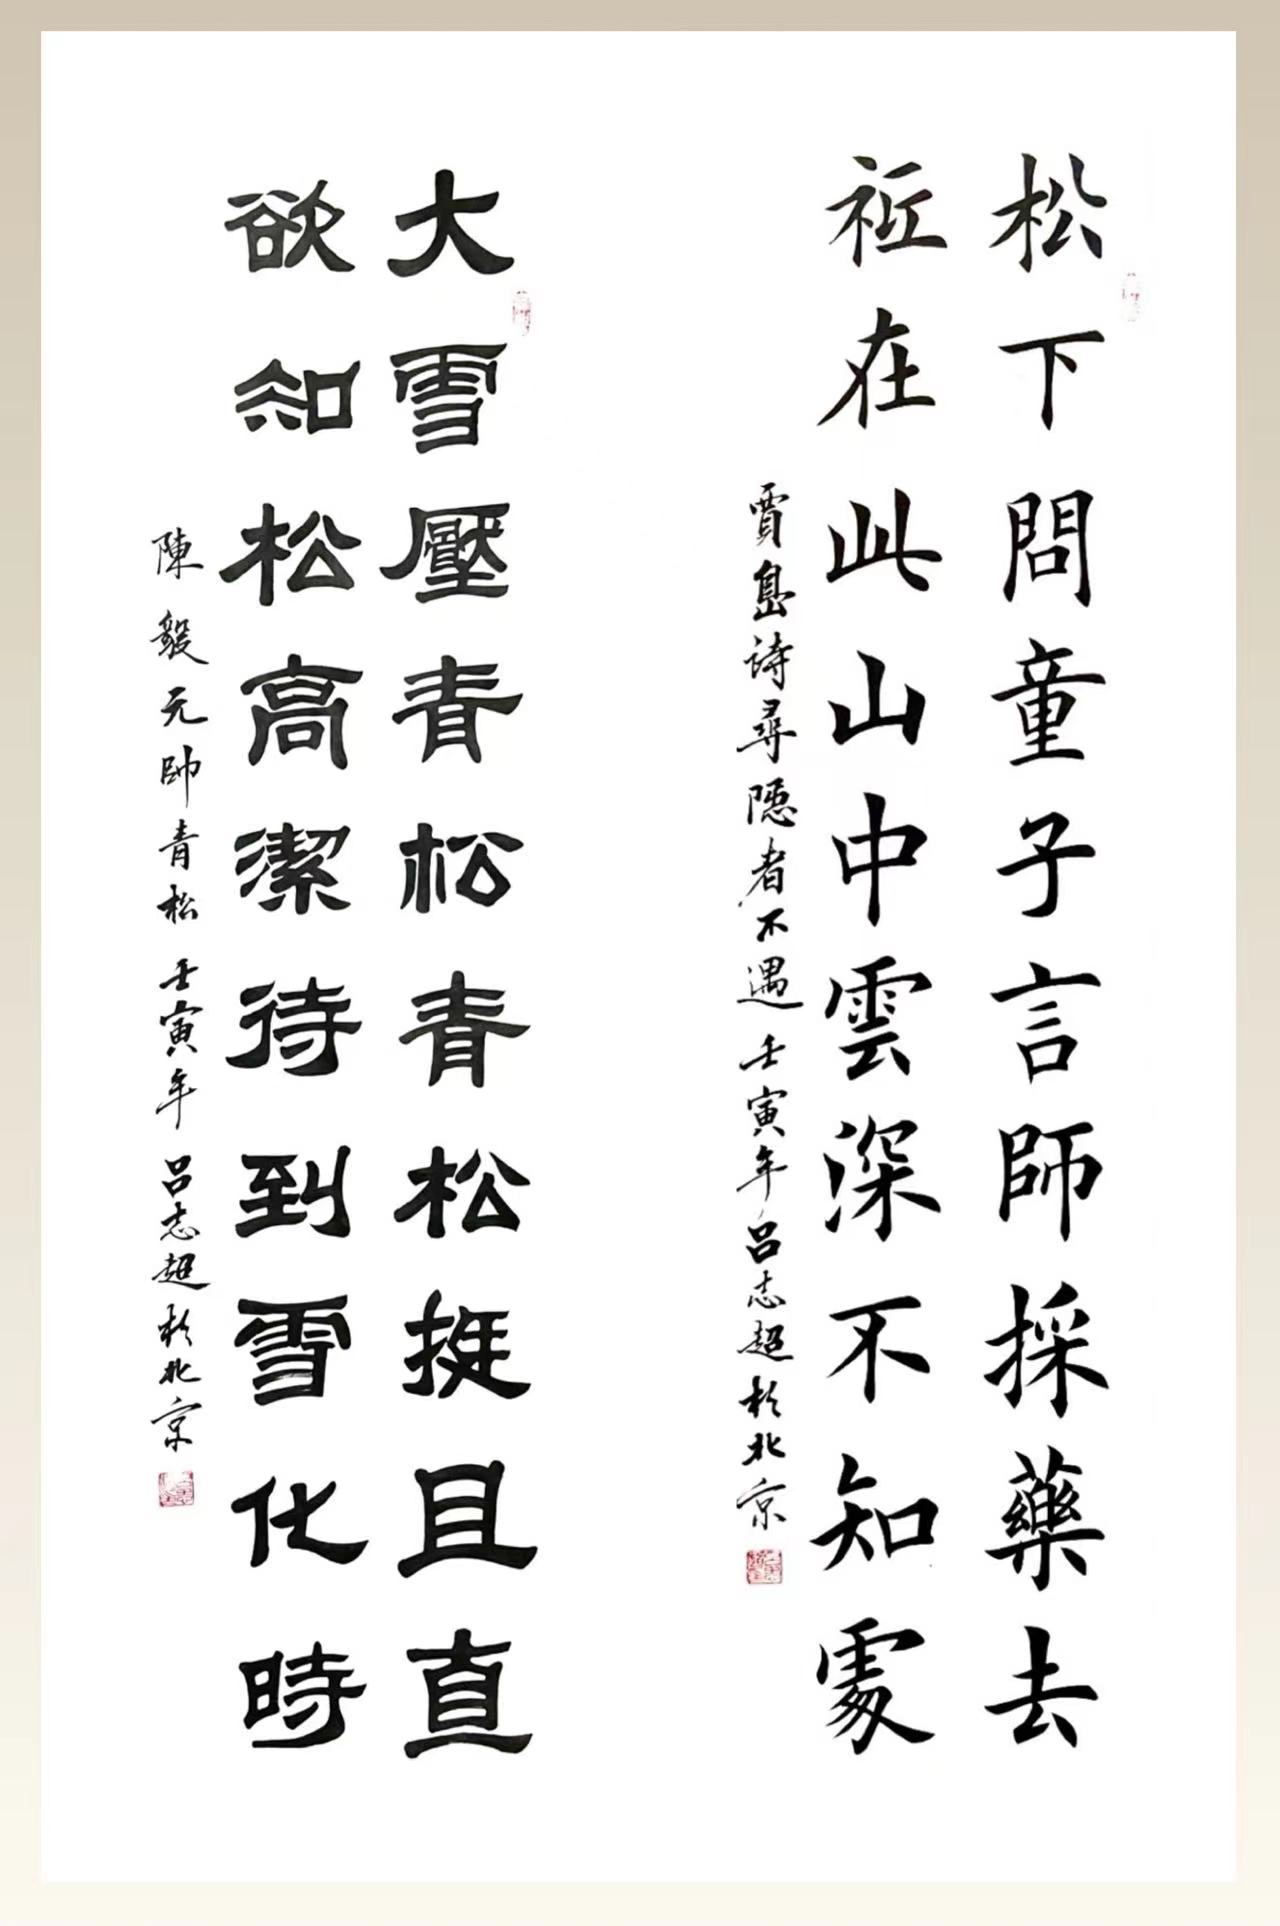 松下問童子言師採藥去
祗在此山中雲深不知處
賈島詩尋隱者不遇 壬寅年呂志超於北京
大雪壓青松青松挺且直
欲知松高潔待到雪化時
陳毅元帥青松 壬寅年 呂志超於北京